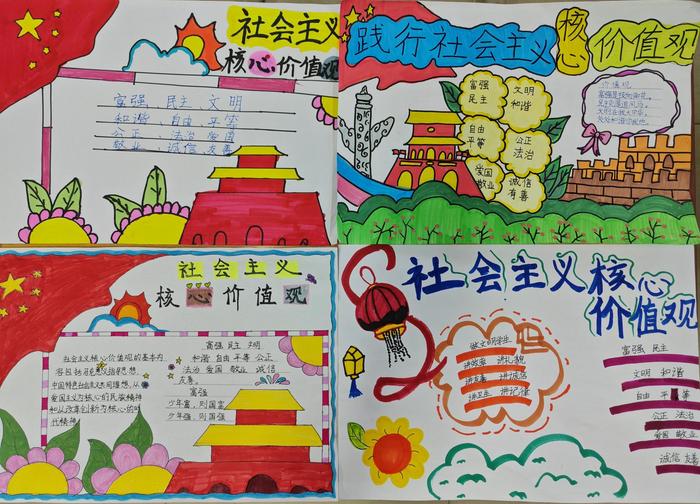 社会主义
核心价值观
富强 民主 文明
和谐 自由 平等
公正 法治 爱国
敬业 诚信 友善
践行社会主义核心价值观
富强
民主
文明
和谐
自由
平等
公正
法治
爱国
敬业
诚信
有善
价值观
社会主义
核心价值观
社会主义核心价值观的基本内
中国特色社会主义共同理想,从
爱国主义为核心的民族精神
和以改革创新为核心的时
代精神
富强 民主 文明
和谐 自由 平等 公正
法治 爱国 敬业 诚信
友善。
富强
少年富,则国富
少年强,则国强
社会主义核心
价值观
做文明学生
讲效率 讲礼貌
讲友善 讲诚信
讲卫生 讲纪律
富强 民主
文明 和谐
自由 平 等
公正 法治
爱国 敬业
诚信 友善